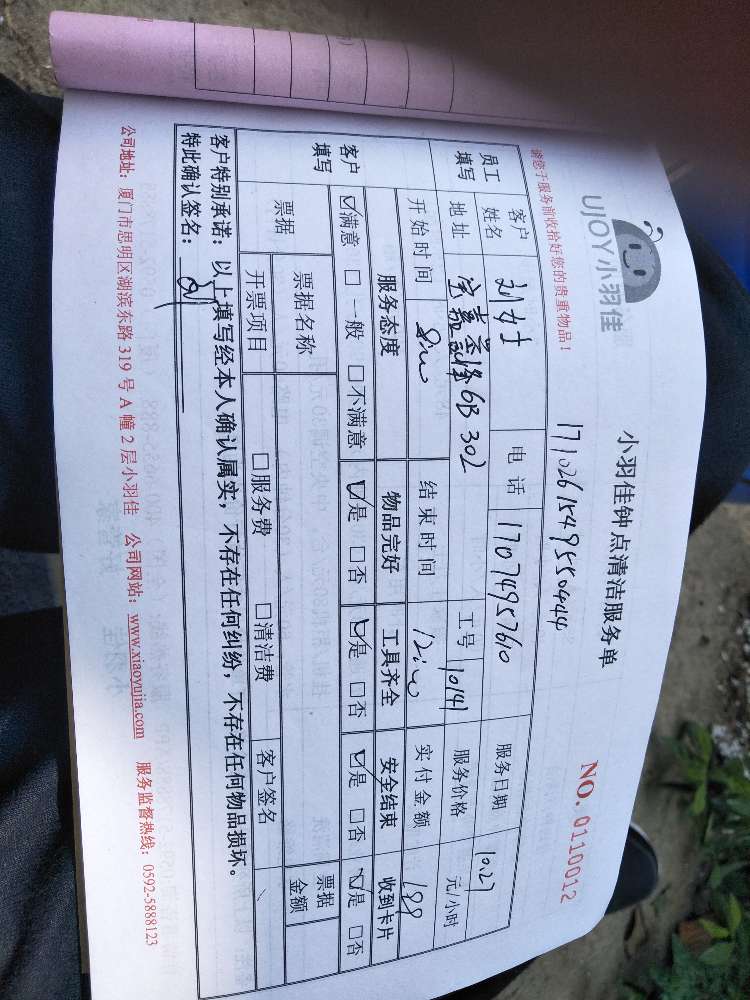 UJOY小羽佳
小羽佳钟点清洁服务单
NO. 0110012
请您于服务前收拾好您的贵重物品！
1710261549550444
员工填写 客户姓名 刘女士 电话 17074957610 服务日期 10.27
地址 宝嘉誉峰6B 302 工号 10141 服务价格 元/小时
开始时间 8:00 结束时间 12:00 实付金额
客户填写 服务态度 物品完好 工具齐全 安全结束 收到卡片
☑满意 □一般 □不满意 ☑是 □否 ☑是 □否 ☑是 □否 ☑是 □否
票据 票据名称 票据金额
开票项目 □服务费 □清洁费 客户签名
客户特别承诺：以上填写经本人确认属实，不存在任何纠纷，不存在任何物品损坏。
特此确认签名：刘
公司地址：厦门市思明区湖滨东路 319 号 A 幢 2 层小羽佳 公司网站：www.xiaoyujia.com 服务监督热线：0592-5888123